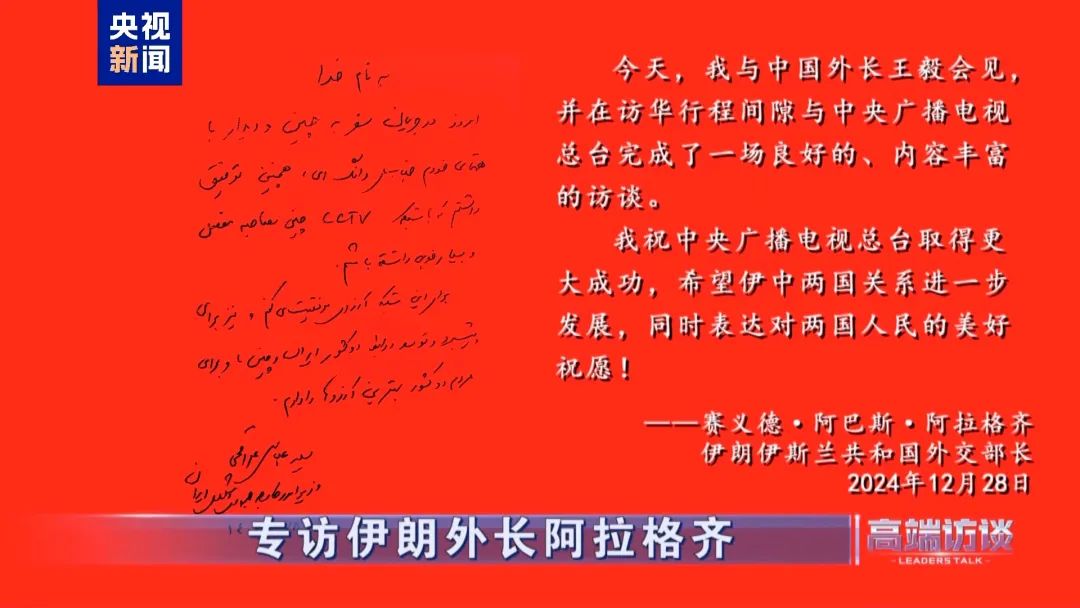 央视
新闻
به نام خدا
امروز در جریان سفر به چین و دیدار با
همتای خودم وانگ ای، همچنین توفیق
داشتم که با شبکه CCTV چین مصاحبه مفصل
و بسیار خوبی داشته باشم.
برای این شبکه آرزوی موفقیت می کنم و نیز برای
و توسعه روابط دو کشور ایران و چین و برای
مردم دو کشور بهترین آرزوها را دارم.
سید عباس عراقچی
وزیر امور خارجه جمهوری اسلامی ایران
今天，我与中国外长王毅会见，
并在访华行程间隙与中央广播电视
总台完成了一场良好的、内容丰富
的访谈。
我祝中央广播电视总台取得更
大成功，希望伊中两国关系进一步
发展，同时表达对两国人民的美好
祝愿！
——赛义德·阿巴斯·阿拉格齐
伊朗伊斯兰共和国外交部长
2024年12月28日
专访伊朗外长阿拉格齐
高端访谈
LEADERS TALK